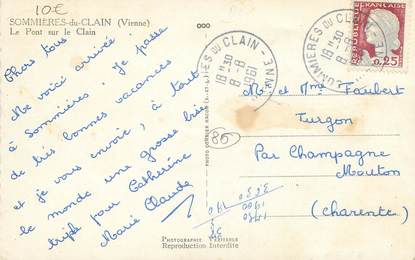 10€
SOMMIÈRES-du-CLAIN (Vienne)
Le Pont sur le Clain
Chers tous
Me voici arrivée
à Sommières. Je passe
de très bonnes vacances
et je vous envoie, à tout
le monde une grosse bise
triple pour Catherine
Marie Claude
PHOTOGRAPHIE VÉRITABLE
Reproduction Interdite
SOMMIERES DU CLAIN - VIENNE
18H30
8-8
1961
SOMMIERES DU CLAIN
18H30
8-8
REPUBLIQUE FRANÇAISE
0,25
86
M. et Mme Faubert
Turgon
Par Champagne
Mouton
(Charente)